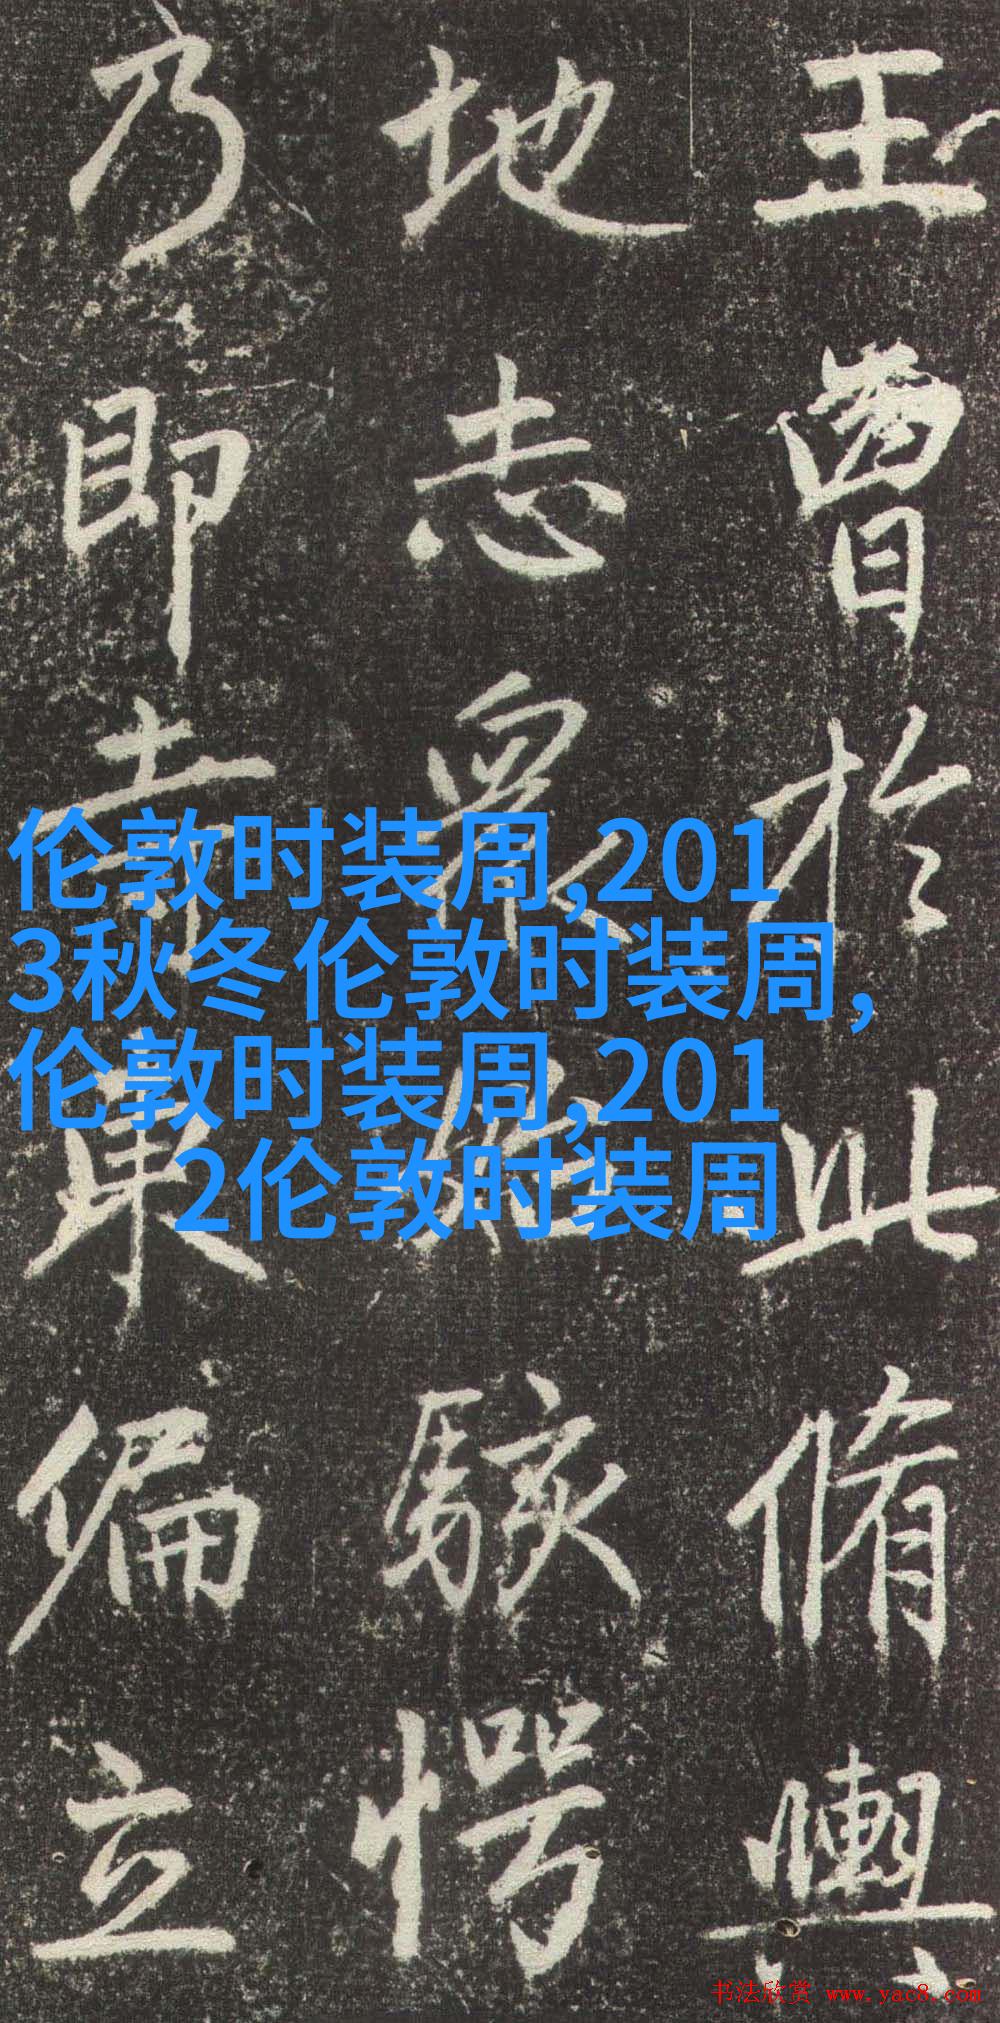 王曹於此脩輿
地志衆始駭愕
乃即寺東偏立
伦敦时装周,201
3秋冬伦敦时装周,
伦敦时装周,201
2伦敦时装周
书法欣赏 www.yac8.com